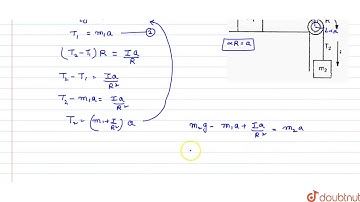 T₁ = m₁a —— ②
(T₂-T₁) R = Ia/R
T₂ - T₁ = Ia/R²
T₂ - m₁a = Ia/R²
T₂ = (m₁ + I/R²) a
αR = a
R
T₂
m₂
m₂g - m₁a + Ia/R² = m₂a
doubtnut